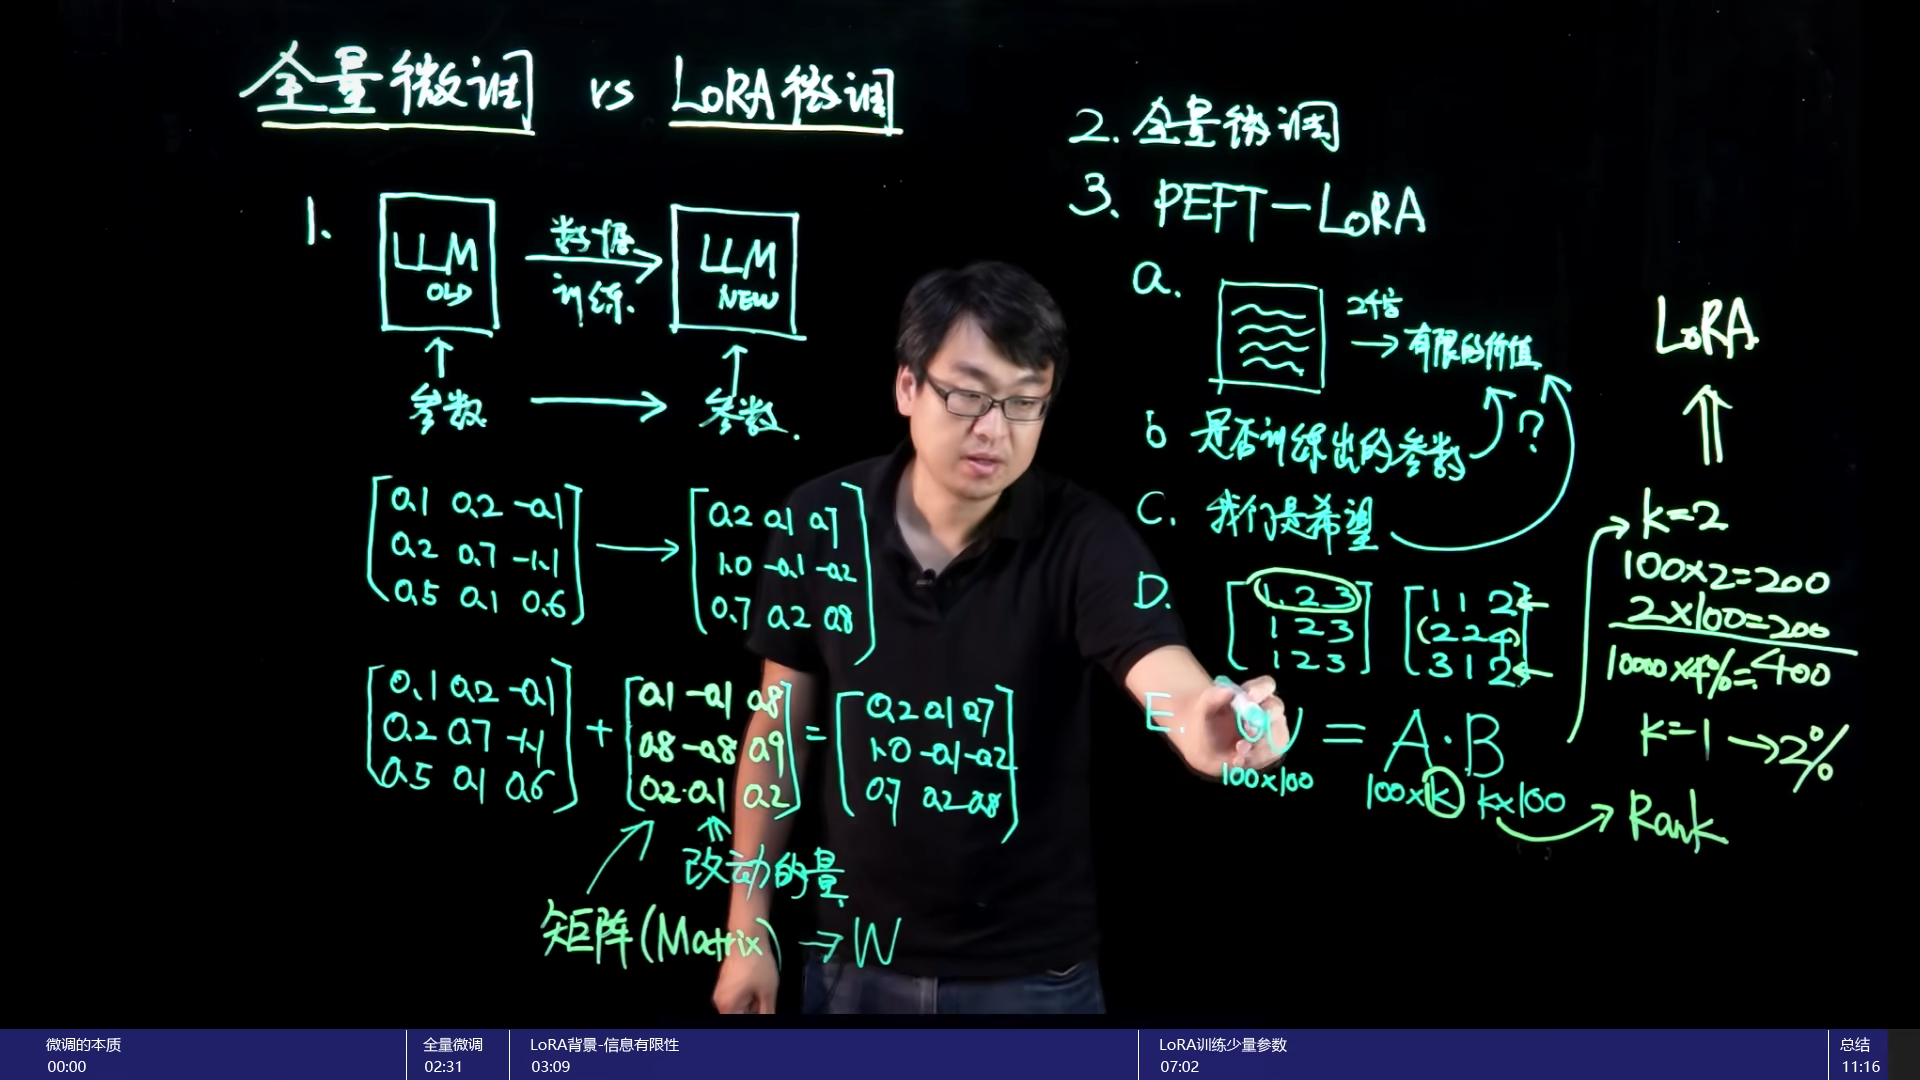 全量微调 vs LoRA微调
1.
LLM
OLD
数据
训练.
LLM
NEW
参数
参数.
0.1 0.2 -0.1
0.2 0.7 -1.1
0.5 0.1 0.6
0.2 0.1 0.7
1.0 -0.1 -0.2
0.7 0.2 0.8
0.1 0.2 -0.1
0.2 0.7 -1.1
0.5 0.1 0.6
+
0.1 -0.1 0.8
0.8 -0.8 0.9
0.2 -0.1 0.2
=
0.2 0.1 0.7
1.0 -0.1 -0.2
0.7 0.2 0.8
改动的量
矩阵(Matrix) → W
2. 全量微调
3. PEFT-LoRA
a.
2倍
→ 有限的价值
b 是否训练出的参数
?
C. 我们是希望
D.
1 2 3
1 2 3
1 2 3
1 1 2
(2 2 4)
3 1 2
E. W = A·B
100x100
100xk kx100
Rank
LoRA
k=2
100x2=200
2x100=200
10000x4%=400
k=1 → 2%
微调的本质
00:00
全量微调
02:31
LoRA背景-信息有限性
03:09
LoRA训练少量参数
07:02
总结
11:16